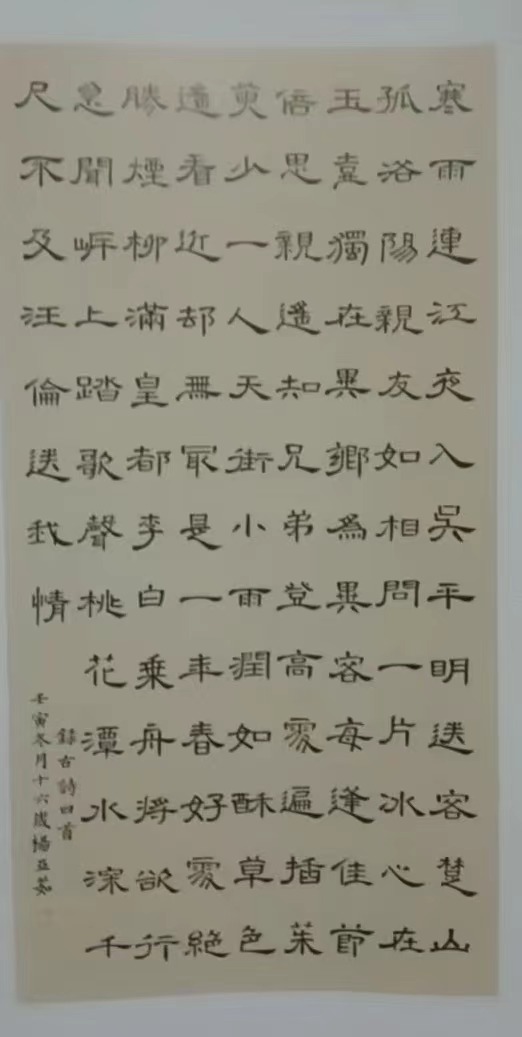 寒雨連江夜入吳平明送客楚山
孤洛陽親友如相問一片冰心在
玉壺獨在異鄉爲異客每逢佳節
倍思親遙知兄弟登高處遍插茱
萸少一人天街小雨潤如酥草色
遙看近却無最是一年春好處絕
勝煙柳滿皇都李白乘舟將欲行
忽聞岸上踏歌聲桃花潭水深千
尺不及汪倫送我情
錄古詩四首
壬寅冬月十六歲楊亞茹